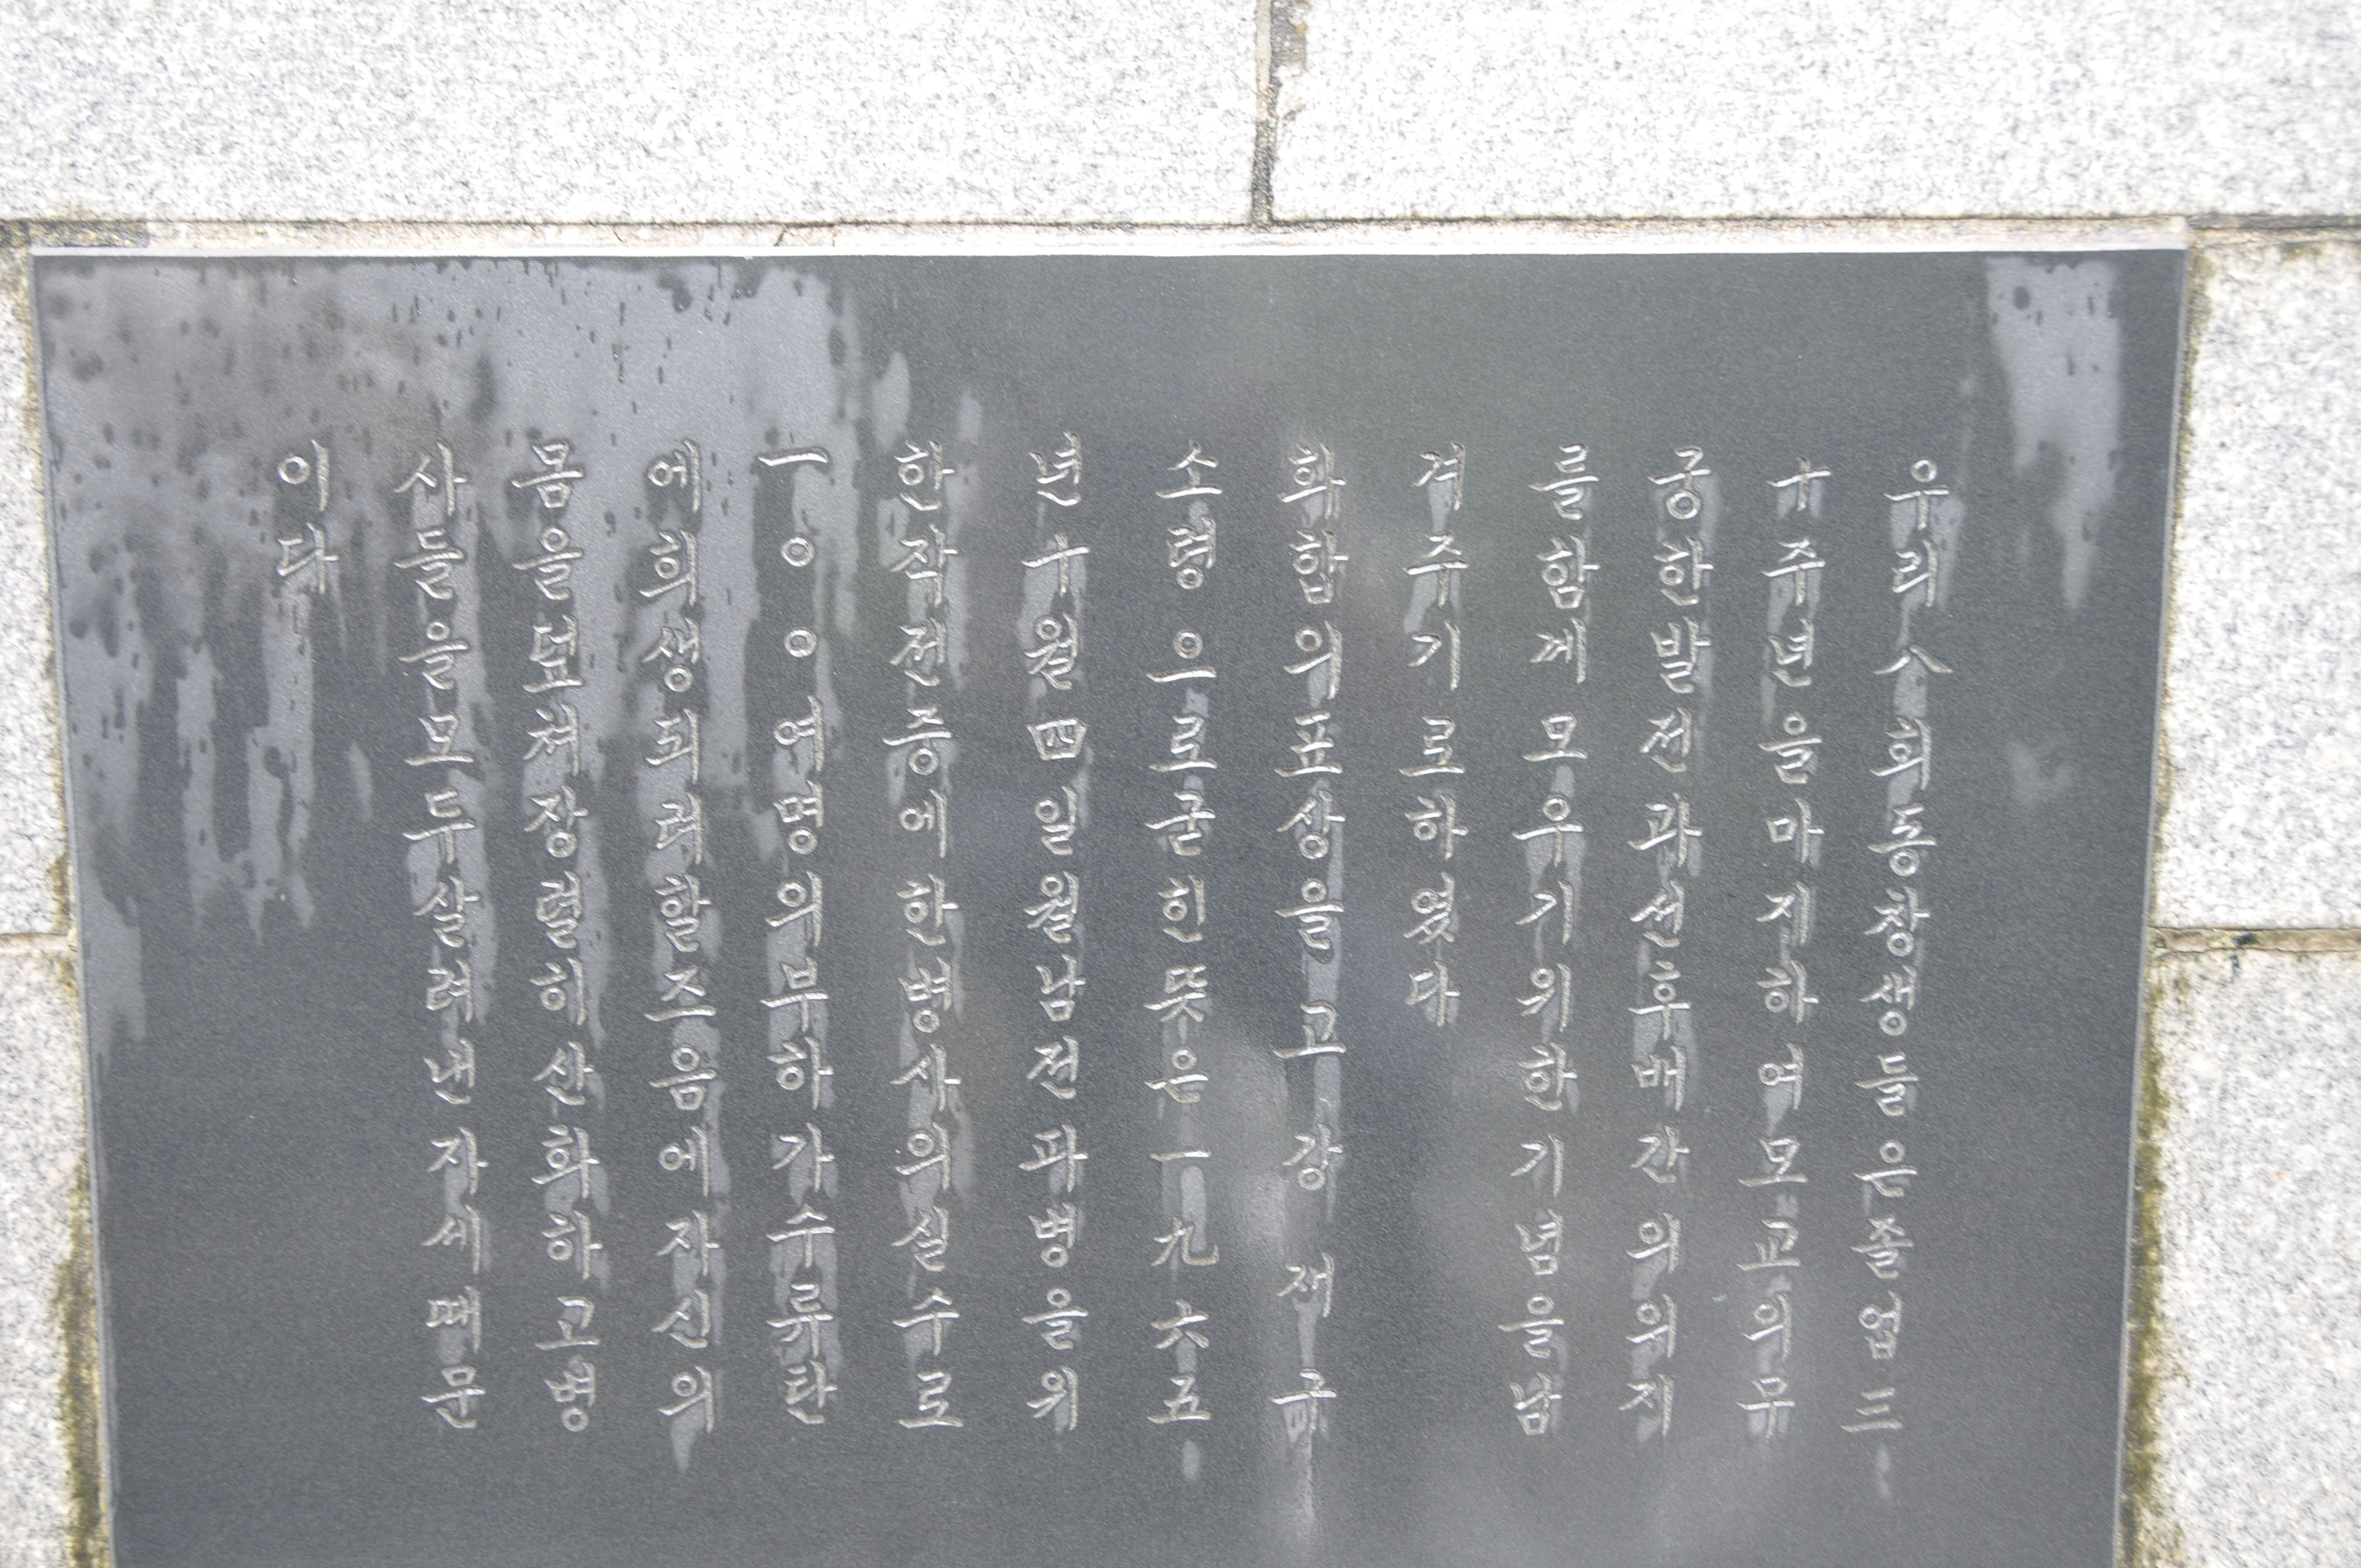 우리八회동창생들은졸업三
十주년을마지하여모교의무
궁한발전과선후배간의의지
를함께모우기위한기념을남
겨주기로하였다
화합의표상을고강재구
소령으로굳힌뜻은一九六五
년十월四일월남전파병을위
한작전중에한병사의실수로
一○○여명의부하가수류탄
에희생되려할즈음에자신의
몸을덮쳐장렬히산화하고병
사들을모두살려낸자세때문
이다